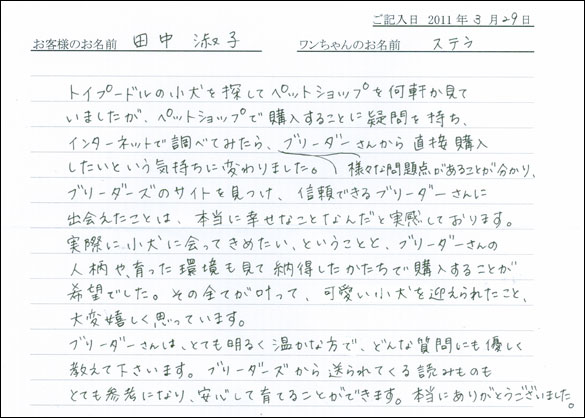 ご記入日 2011年3月29日
お客様のお名前 田中 淑子 ワンちゃんのお名前 ステラ
トイプードルの小犬を探してペットショップを何軒か見て
いましたが、ペットショップで購入することに疑問を持ち、
インターネットで調べてみたら、ブリーダーさんから直接購入
したいという気持ちに変わりました。様々な問題点があることが分かり、
ブリーダーズのサイトを見つけ、信頼できるブリーダーさんに
出会えたことは、本当に幸せなことなんだと実感しております。
実際に小犬に会ってきめたい、ということと、ブリーダーさんの
人柄や、育った環境も見て納得したかたちで購入することが
希望でした。その全てが叶って、可愛い小犬を迎えられたこと、
大変嬉しく思っています。
ブリーダーさんは、とても明るく温かな方で、どんな質問にも優しく
教えて下さいます。ブリーダーズから送られてくる読みものも
とても参考になり、安心して育てることができます。本当にありがとうございました。